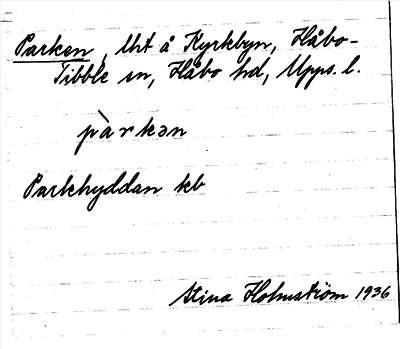 Parken, lht å Kyrkbyn, Håbo-
Tibble sn, Håbo hd, Upps. l.
pàrkən
Parkhyddan kb
Stina Holmström 1936